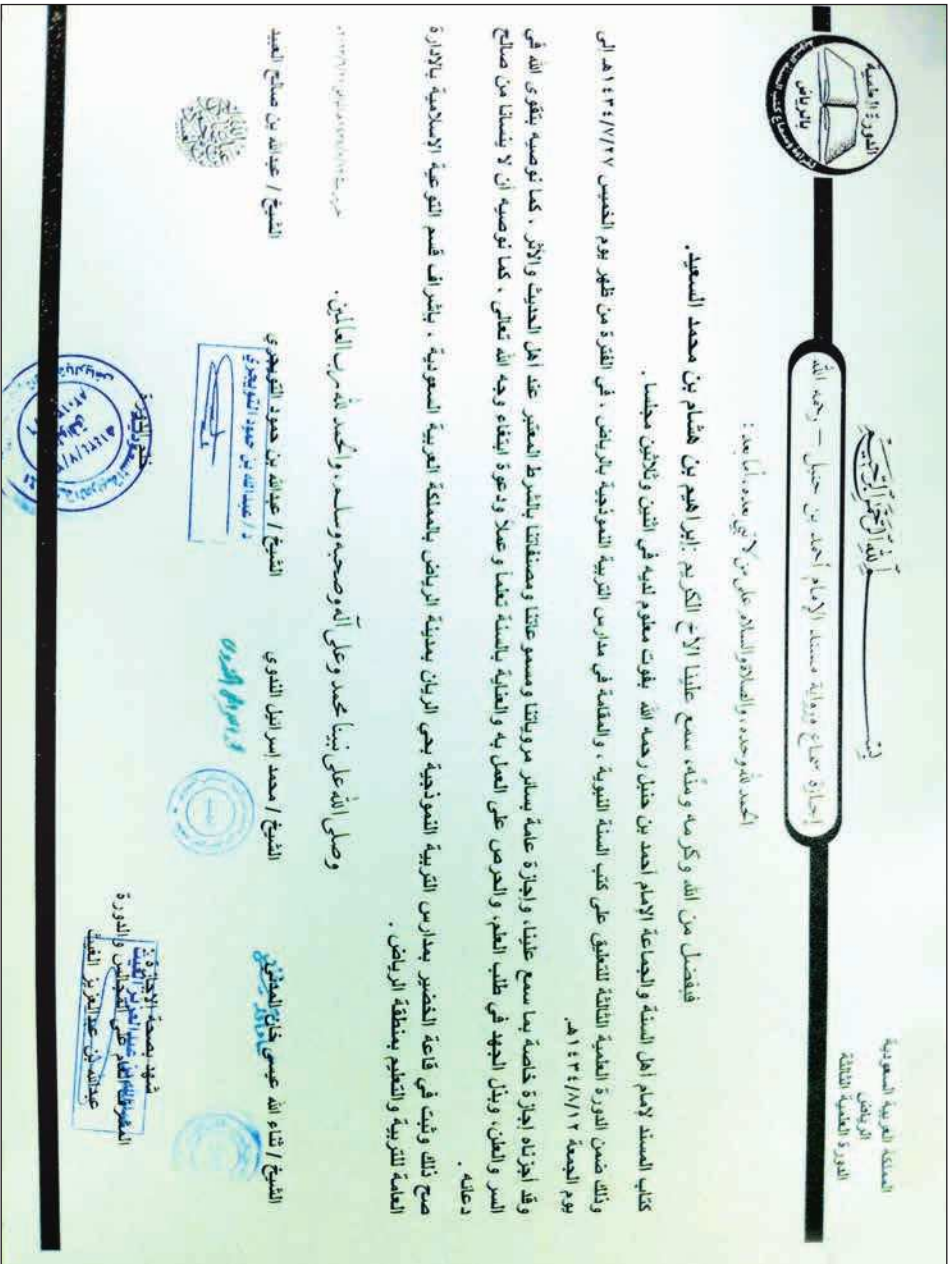 المملكة العربية السعودية
الرياض
الدورة العلمية الثالثة
الدورة العلمية
بالرياض
إجازة سماع ورواية مسند الإمام أحمد بن حنبل – رحمه الله
الحمد لله وحده، والصلاة والسلام على من لا نبي بعده، أما بعد:
فبفضل من الله وكرمه ومنه، سمع علينا الأخ الكريم إبراهيم بن هشام بن محمد السعيد.
كتاب المسند لإمام أهل السنة والجماعة الإمام أحمد بن حنبل رحمه الله بفوت معلوم لديه في اثنين وثلاثين مجلسا.
وذلك ضمن الدورة العلمية الثالثة للتعليق على كتب السنة النبوية، والمقامة في مدارس التربية النموذجية بالرياض، في الفترة من ظهر يوم الخميس ١٤٣٤/٧/٢٧هـ إلى
يوم الجمعة ١٤٣٤/٨/١٢هـ.
وقد أجزناه إجازة خاصة بما سمع علينا، وإجازة عامة بسائر مروياتنا ومسموعاتنا ومصنفاتنا بالشرط المعتبر عند أهل الحديث والأثر، كما نوصيه بتقوى الله في
السر والعلن، وبذل الجهد في طلب العلم، والحرص على العمل به والعناية بالسنة تعلماً وعملاً ودعوة ابتغاء وجه الله تعالى، كما نوصيه أن لا ينسانا من صالح
دعائه.
صح ذلك وثبت في قاعة الخضير بمدارس التربية النموذجية بحي الريان بمدينة الرياض بالمملكة العربية السعودية، بإشراف قسم التوعية الإسلامية بالإدارة
العامة للتربية والتعليم بمنطقة الرياض.
وصلى الله على نبينا محمد وعلى آله وصحبه وسلم، والحمد لله رب العالمين.
الشيخ / ثناء الله عيسى خان
الشيخ / محمد إسرائيل الندوي
الشيخ / عبدالله بن حمود التويجري
د / عبدالله بن حمود التويجري
الشيخ / عبدالله بن صالح العبيد
شهد بصحة الإجازة:
المشرف العام على المجالس والدورة
عبدالله بن عبدالعزيز الغيث
ختم الدورة